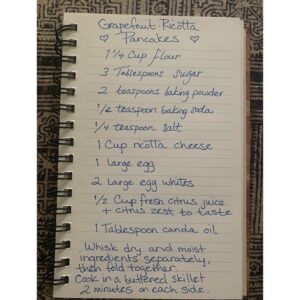 Grapefruit Ricotta
♡ Pancakes ♡
1 1/4 Cup flour
3 Tablespoons sugar
2 teaspoons baking powder
1/2 teaspoon baking soda
1/4 teaspoon salt
1 Cup ricotta cheese
1 large egg
2 large egg whites
1/2 Cup fresh citrus juice
+ citrus zest to taste
1 Tablespoon canola oil
Whisk dry and moist
ingredients separately,
then fold together.
Cook in a buttered skillet
2 minutes on each side.